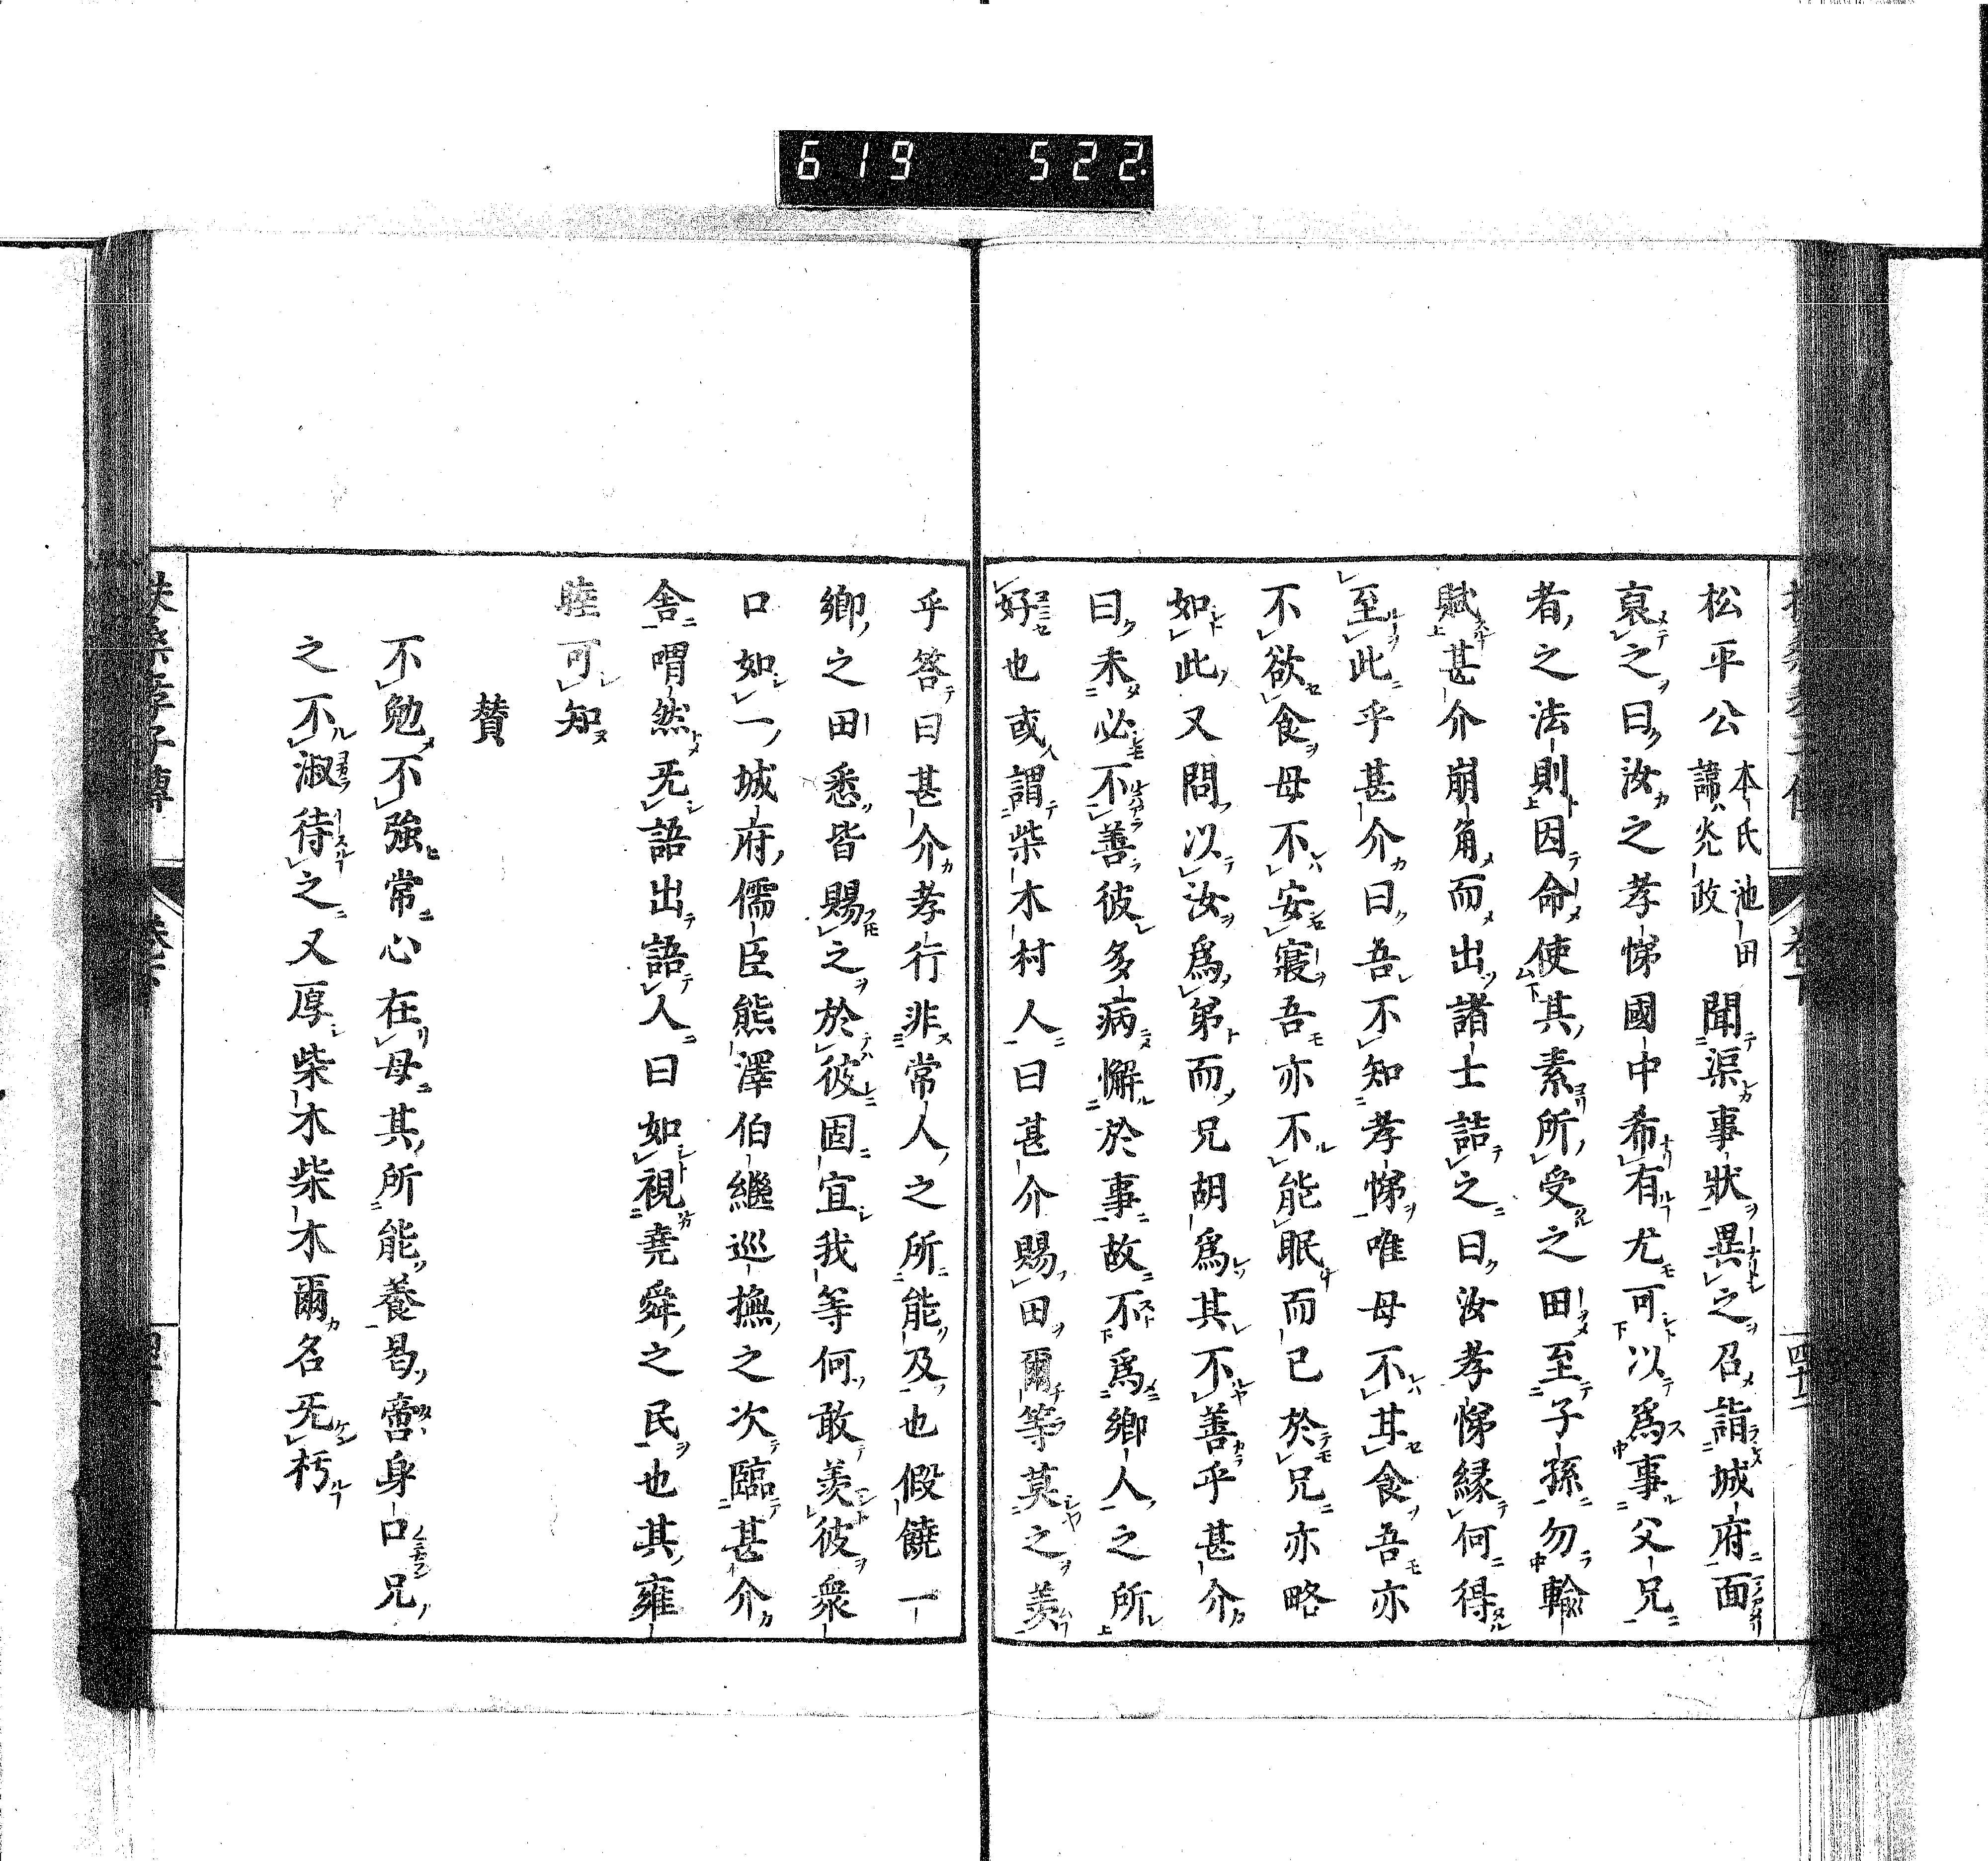 619 522
松平公本氏池田諱光政聞渠事狀異之召詣城府面
裒之曰汝之孝悌國中希有尤可以爲事父兄
者之法則因命使其素所受之田至子孫勿輸
賦甚介崩角而出諸士詰之曰汝孝悌縁何得
至此乎甚介曰吾不知孝悌唯母不甘食吾亦
不欲食母不安寢吾亦不能眠而已於兄亦略
如此又問以汝爲弟而兄胡爲其不善乎甚介
曰未必不善彼多病懈於事故不爲鄉人之所
好也或謂柴木村人曰甚介賜田爾等莫之羨
乎答曰甚介孝行非常人之所能及也假饒一
鄉之田悉皆賜之於彼固宜我等何敢羨彼衆
口如一城府儒臣熊澤伯繼巡撫之次臨甚介
舎喟然无語出語人曰如視堯舜之民也其雍
睦可知
贊
不勉不強常心在母其所能養曷啻身口兄
之不淑待之又厚柴木柴木爾名无朽